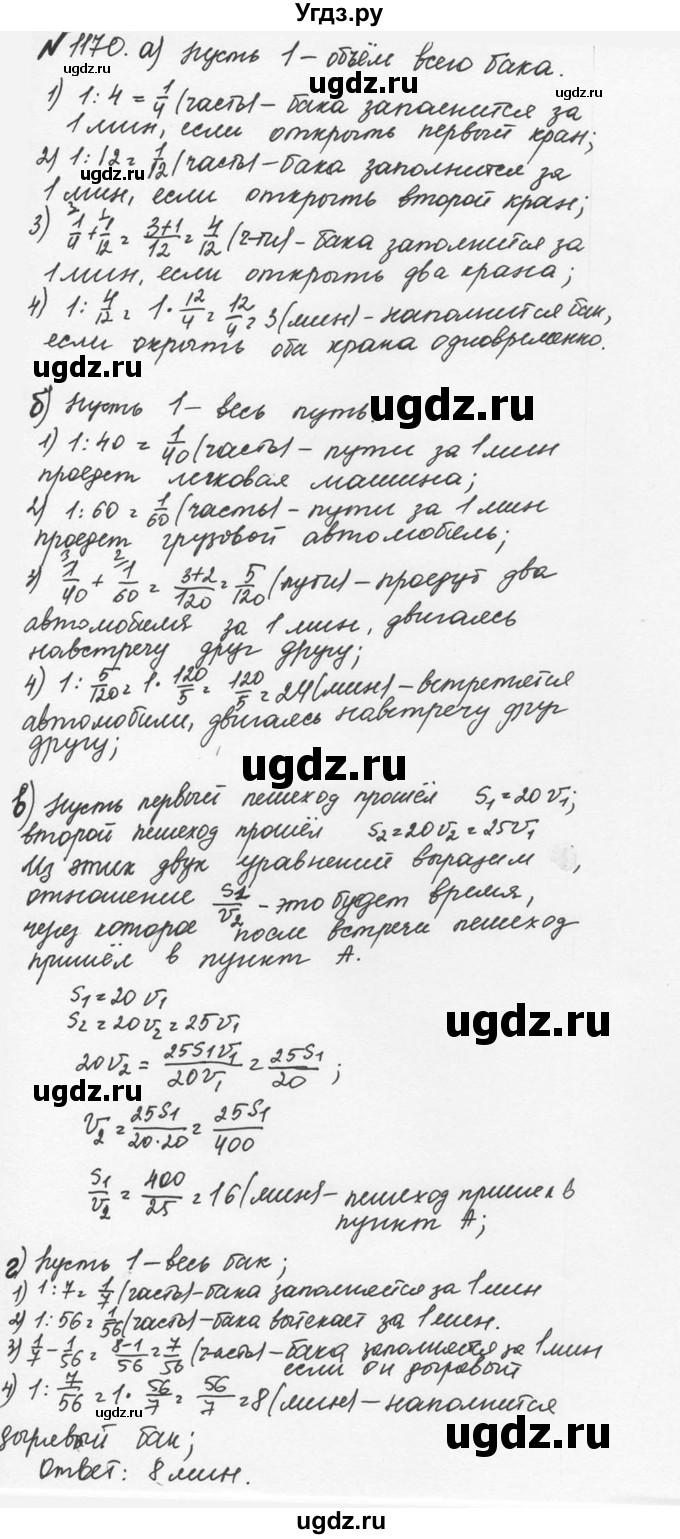 Угдз.ру
№1170. а) Пусть 1 – объём всего бака.
1) 1 : 4 = 1/4 (часть) – бака заполнится за
1 мин, если открыть первый кран;
2) 1 : 12 = 1/12 (часть) – бака заполнится за
1 мин, если открыть второй кран;
3) 1/4 + 1/12 = 3+1/12 = 4/12 (ч-ти) – бака заполнится за
1 мин, если открыть два крана;
4) 1 : 4/12 = 1 · 12/4 = 12/4 = 3 (мин) – наполнится бак,
если окрыть оба крана одновременно.
ugdz.ru
ugdz.ru
б) Пусть 1 – весь путь.
1) 1 : 40 = 1/40 (часть) – пути за 1 мин
проедет легковая машина;
2) 1 : 60 = 1/60 (часть) – пути за 1 мин
ugdz.ru
проедет грузовой автомобиль;
3) 1/40 + 1/60 = 3+2/120 = 5/120 (пути) – проедут два
автомобиля за 1 мин, двигаясь
навстречу друг другу;
4) 1 : 5/120 = 1 · 120/5 = 120/5 = 24 (мин) – встретятся
автомобили, двигаясь навстречу друг
другу;
ugdz.ru
в) Пусть первый пешеход прошёл S1 = 20 v1;
второй пешеход прошёл S2 = 20 v2 = 25 v1
Из этих двух уравнений выразим ,
отношение S1/v2 – это будет время,
через которое после встречи пешеход
пришёл в пункт А.
S1 = 20 v1
S2 = 20 v2 = 25 v1
ugdz.ru
20 v2 = 25 S1 v1/20 v1 = 25 S1/20 ;
ugdz.ru
v2 = 25 S1/20·20 = 25 S1/400
S1/v2 = 400/25 = 16 (мин) – пешеход пришел в
пункт А;
г) Пусть 1 – весь бак;
1) 1 : 7 = 1/7 (часть) – бака заполняется за 1 мин
2) 1 : 56 = 1/56 (часть) – бака вытекает за 1 мин.
3) 1/7 – 1/56 = 8-1/56 = 7/56 (часть) – бака заполняется за 1 мин
если он дырявый
4) 1 : 7/56 = 1 · 56/7 = 56/7 = 8 (мин) – наполнится
ugdz.ru
дырявый бак;
ugdz.ru
Ответ: 8 мин.
ugdz.ru